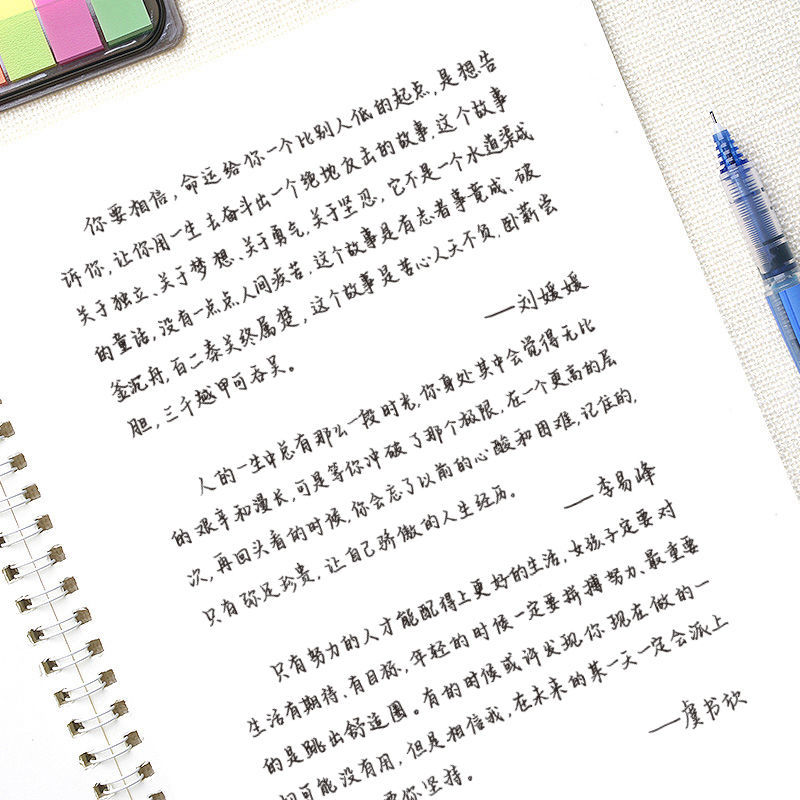 你要相信，命运给你一个比别人低的起点，是想告
诉你，让你用一生去奋斗出一个绝地反击的故事，这个故事
关于独立、关于梦想、关于勇气、关于坚忍，它不是一个水道渠成
的童话，没有一点点人间疾苦，这个故事是有志者事竟成、破
釜沉舟，百二秦关终属楚，这个故事是苦心人天不负，卧薪尝
胆，三千越甲可吞吴。
——刘媛媛
人的一生中总有那么一段时光，你身处其中会觉得无比
的艰辛和漫长，可是等你冲破了那个极限，在一个更高的层
次，再回头看的时候，你会忘了以前的心酸和困难，记住的，
只有弥足珍贵，让自己骄傲的人生经历。
——李易峰
只有努力的人才能配得上更好的生活，女孩子定要对
生活有期待、有目标，年轻的时候一定要拼搏努力、最重要
的是跳出舒适圈。有的时候或许发现你现在做的一
切可能没有用，但是相信我，在未来的某一天一定会派上
要你坚持。
——虞书欣